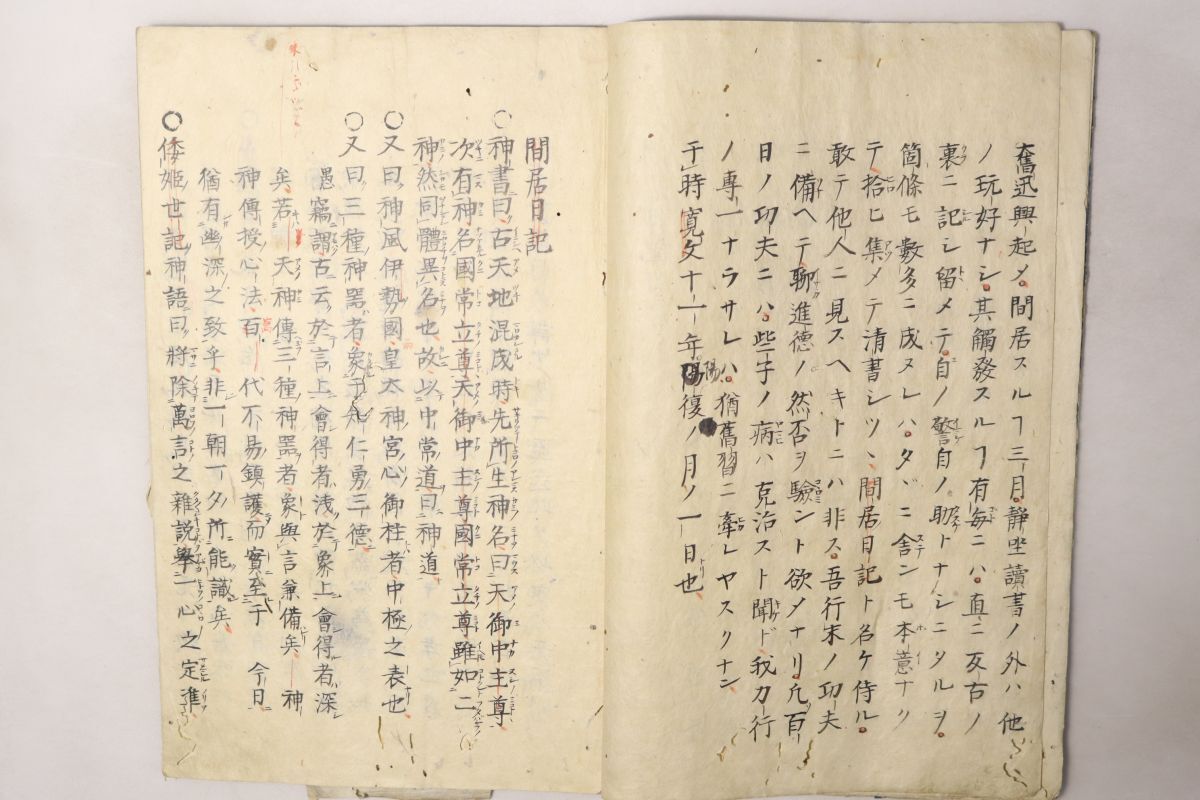 奮迅興起〆。間居スルヿ三月。静坐讀書ノ外ハ他
ノ玩好ナシ。其觸發スルヿ有毎ニハ。直ニ反古ノ
裏ニ記シ留メテ。自ノ警自ノ助トナシニタルヲ。
箇條モ數多ニ成ヌレハ。タヾニ舎ンモ本意ナク
テ。拾ヒ集メテ清書シツヽ。間居日記ト名ケ侍ル。
敢テ他人ニ見スヘキトニハ非ス。吾行末ノ功夫
ニ備ヘテ。聊進德ノ然否ヲ驗ント欲メナリ。凡百
日ノ功夫ニハ。些子ノ病ハ克治スト聞ド。我力行
ノ專一ナラサレハ。猶舊習ニ牽レヤスクナン
于時寛文十一年陽復ノ月ノ一日也
間居日記
○神書曰古天地混成時先所生神名曰天御中主尊
次有神名國常立尊天御中主尊國常立尊雖如二
神然同體異名也故以中常道曰神道
○又曰神風伊勢國皇太神宮心御柱者中極之表也
○又曰三種神器者象于知仁勇三德
愚竊謂古云於言上會得者浅於象上會得者深
矣若天神傳三種神器者象與言兼備矣神
神傳授心法百代不易鎮護而實至于今日
猶有幽深之致乎非一朝一夕所能識矣
○倭姫世記神語曰將除萬言之雜説擧一心之定準